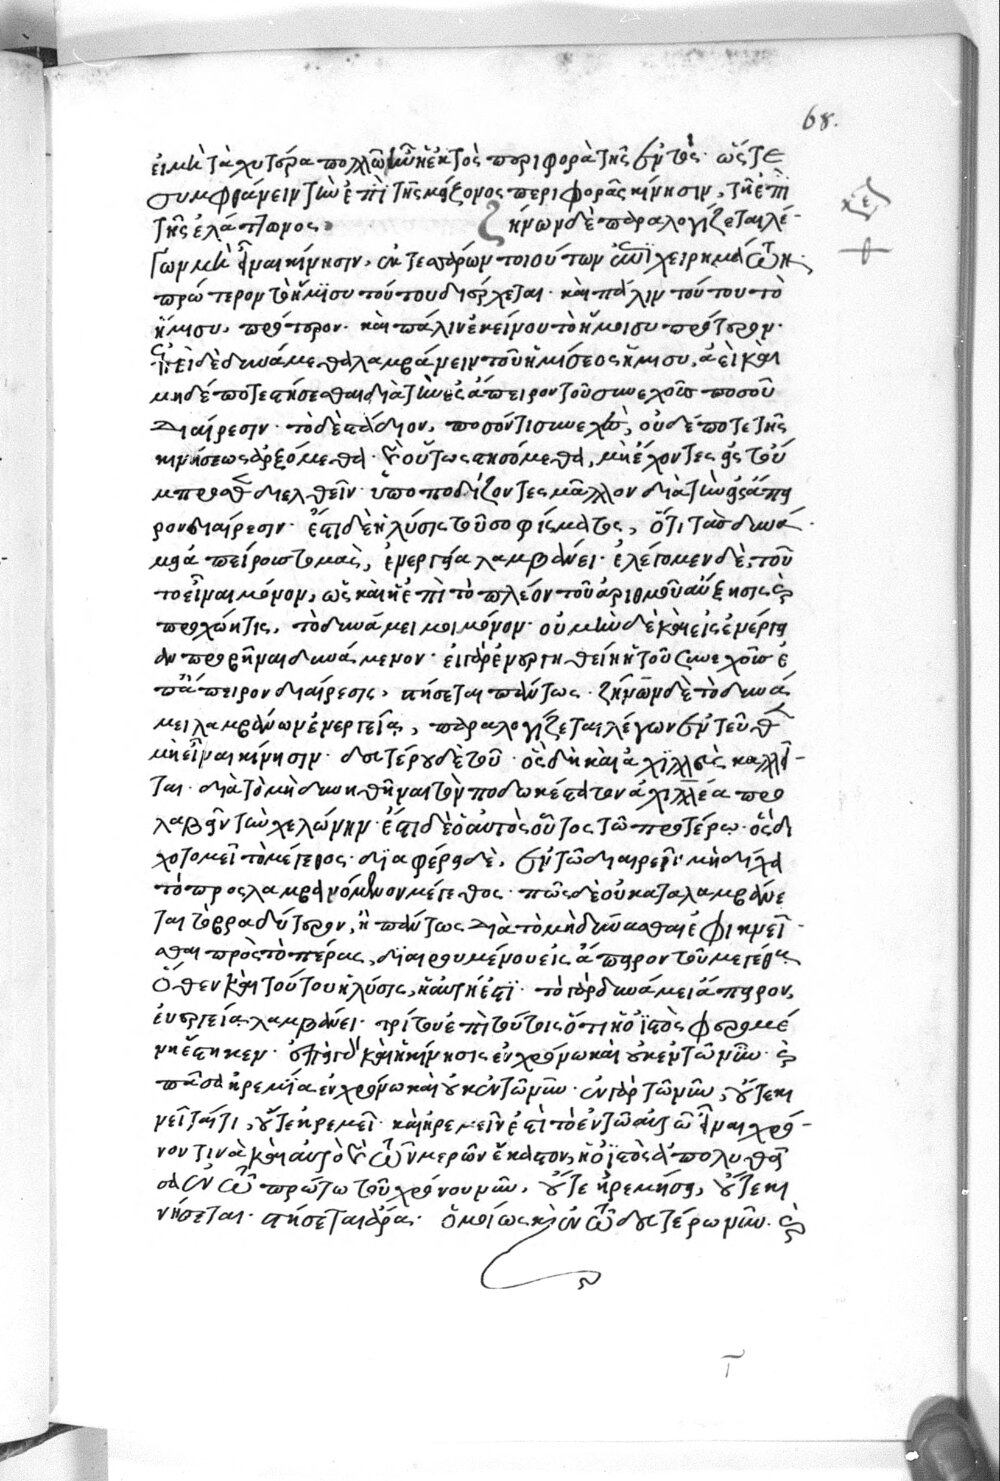 68.
εἰ μὴ ταχυτέρα πολλῷ ἦν ἡ ἐκτὸς περιφορὰ τῆς ἐντός· ὥστε
συμβαίνειν τὴν ἐπὶ τῆς μείζονος περιφορᾶς κίνησιν, τῆ ἐπὶ
τῆς ἐλάττονος, Ζήνων δὲ παραλογίζεται λέ-
γων μὴ εἶναι κίνησιν, ἐκ τεσσάρων τοιούτων ἐπιχειρημάτων·
πρότερον τὸ ἥμισυ τούτου διέρχεται· καὶ πάλιν τούτου τὸ
ἥμισυ, πρότερον· καὶ πάλιν ἐκείνου τὸ ἥμισυ πρότερον·
ἐπεὶ δὲ δυνάμεθα λαμβάνειν τοῦ ἡμίσεος ἥμισυ, ἀεὶ καὶ
μηδέποτε στήσεσθαι διὰ τὴν ἐς ἄπειρον τοῦ συνεχοῦς ποσοῦ
διαίρεσιν· τὸ δὲ στάδιον, ποσόν τι συνεχὲς, οὐδέποτε τῆς
κινήσεως ἀρξόμεθα· οὕτω στησόμεθα, μὴ ἔχοντες εἰς τοὔ
μπροσθεν διελθεῖν· ὑποποδίζοντες μᾶλλον διὰ τὴν εἰς ἄπει
ρον διαίρεσιν· ἔστι δὲ ἡ λύσις τοῦ σοφίσματος, ὅτι τὰς δυνά
μει ἀπείρους τομὰς, ἐνεργείᾳ λαμβάνει· ἐλέγομεν δὲ, τοῦ
το εἶναι μόνον, ὡς καὶ ἡ ἐπὶ τὸ πλέον τοῦ ἀριθμοῦ αὔξησις καὶ
προχώρησις, τὸ δυνάμει μόνον· οὐ μὴν δὲ καὶ εἰς ἐνέργει
αν προβῆναι δυνάμενον· εἰ γὰρ ἐνεργηθείη ἡ τοῦ συνεχοῦς ἐ
π' ἄπειρον διαίρεσις, στήσεται πάντως· Ζήνων δὲ τὸ δυνά
μει λαμβάνων ἐνεργείᾳ, παραλογίζεται λέγων ἐντεῦθεν
μὴ εἶναι κίνησιν· δευτέρου δὲ τοῦ· ὃς δὴ καὶ ἀχιλλεὺς καλεῖ-
ται· διὰ τὸ μὴ δυνηθῆναι τὸν ποδωκέστατον ἀχιλλέα προ
λαβεῖν τὴν χελώνην· ἔστι δὲ ὁ αὐτὸς οὗτος τῷ προτέρῳ· ὃς δι
χοτομεῖ τὸ μέγεθος· διαφέρει δὲ, ἐν τῷ διαιρεῖν μὴ δίχα
τὸ προσλαμβανόμενον μέγεθος· πῶς δὲ οὐ καταλαμβάνε
ται τὸ βραδύτερον, ἢ πάντως διὰ τὸ μὴ δύνασθαι ἐφικνεῖ-
σθαι πρὸς τὸ πέρας, διαιρουμένου εἰς ἄπειρον τοῦ μεγέθους
ὅθεν καὶ τούτου ἡ λύσις, ἡ αὐτή ἐστι· τὸ γὰρ δυνάμει ἄπειρον,
ἐνεργείᾳ λαμβάνει· τρίτου ἐπὶ τούτοις ὅτι ἡ ὀϊστὸς φερομέ
νη ἕστηκεν· ἐπεὶ γὰρ καὶ ἡ κίνησις ἐν χρόνῳ καὶ οὐκ ἐν τῷ νῦν· καὶ
πᾶσα ἠρεμία ἐν χρόνῳ καὶ οὐκ ἐν τῷ νῦν· ἐν γὰρ τῷ νῦν, οὔτε κι
νεῖταί τι, οὔτε ἠρεμεῖ· καὶ ἠρεμεῖν ἐστὶ τὸ ἐν τῷ αὐτῷ εἶναι χρό-
νον τινὰ καὶ αὐτὸ καὶ τῶν μερῶν ἕκαστον, ἡ ὀϊστὸς ἀπολυθεῖ
σα ἐν τῷ πρώτῳ τοῦ χρόνου νῦν, οὔτε ἠρεμήσει, οὔτε κι
νήσεται· στήσεται ἄρα· ὁμοίως καὶ ἐν τῷ δευτέρῳ νῦν· καὶ